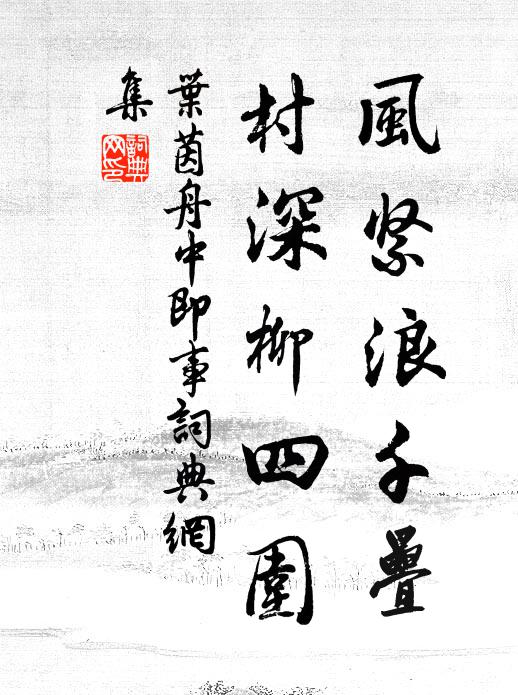 風紧浪千疊
村深柳四圍
葉茵舟中即事詞典網
集
詞典
网印